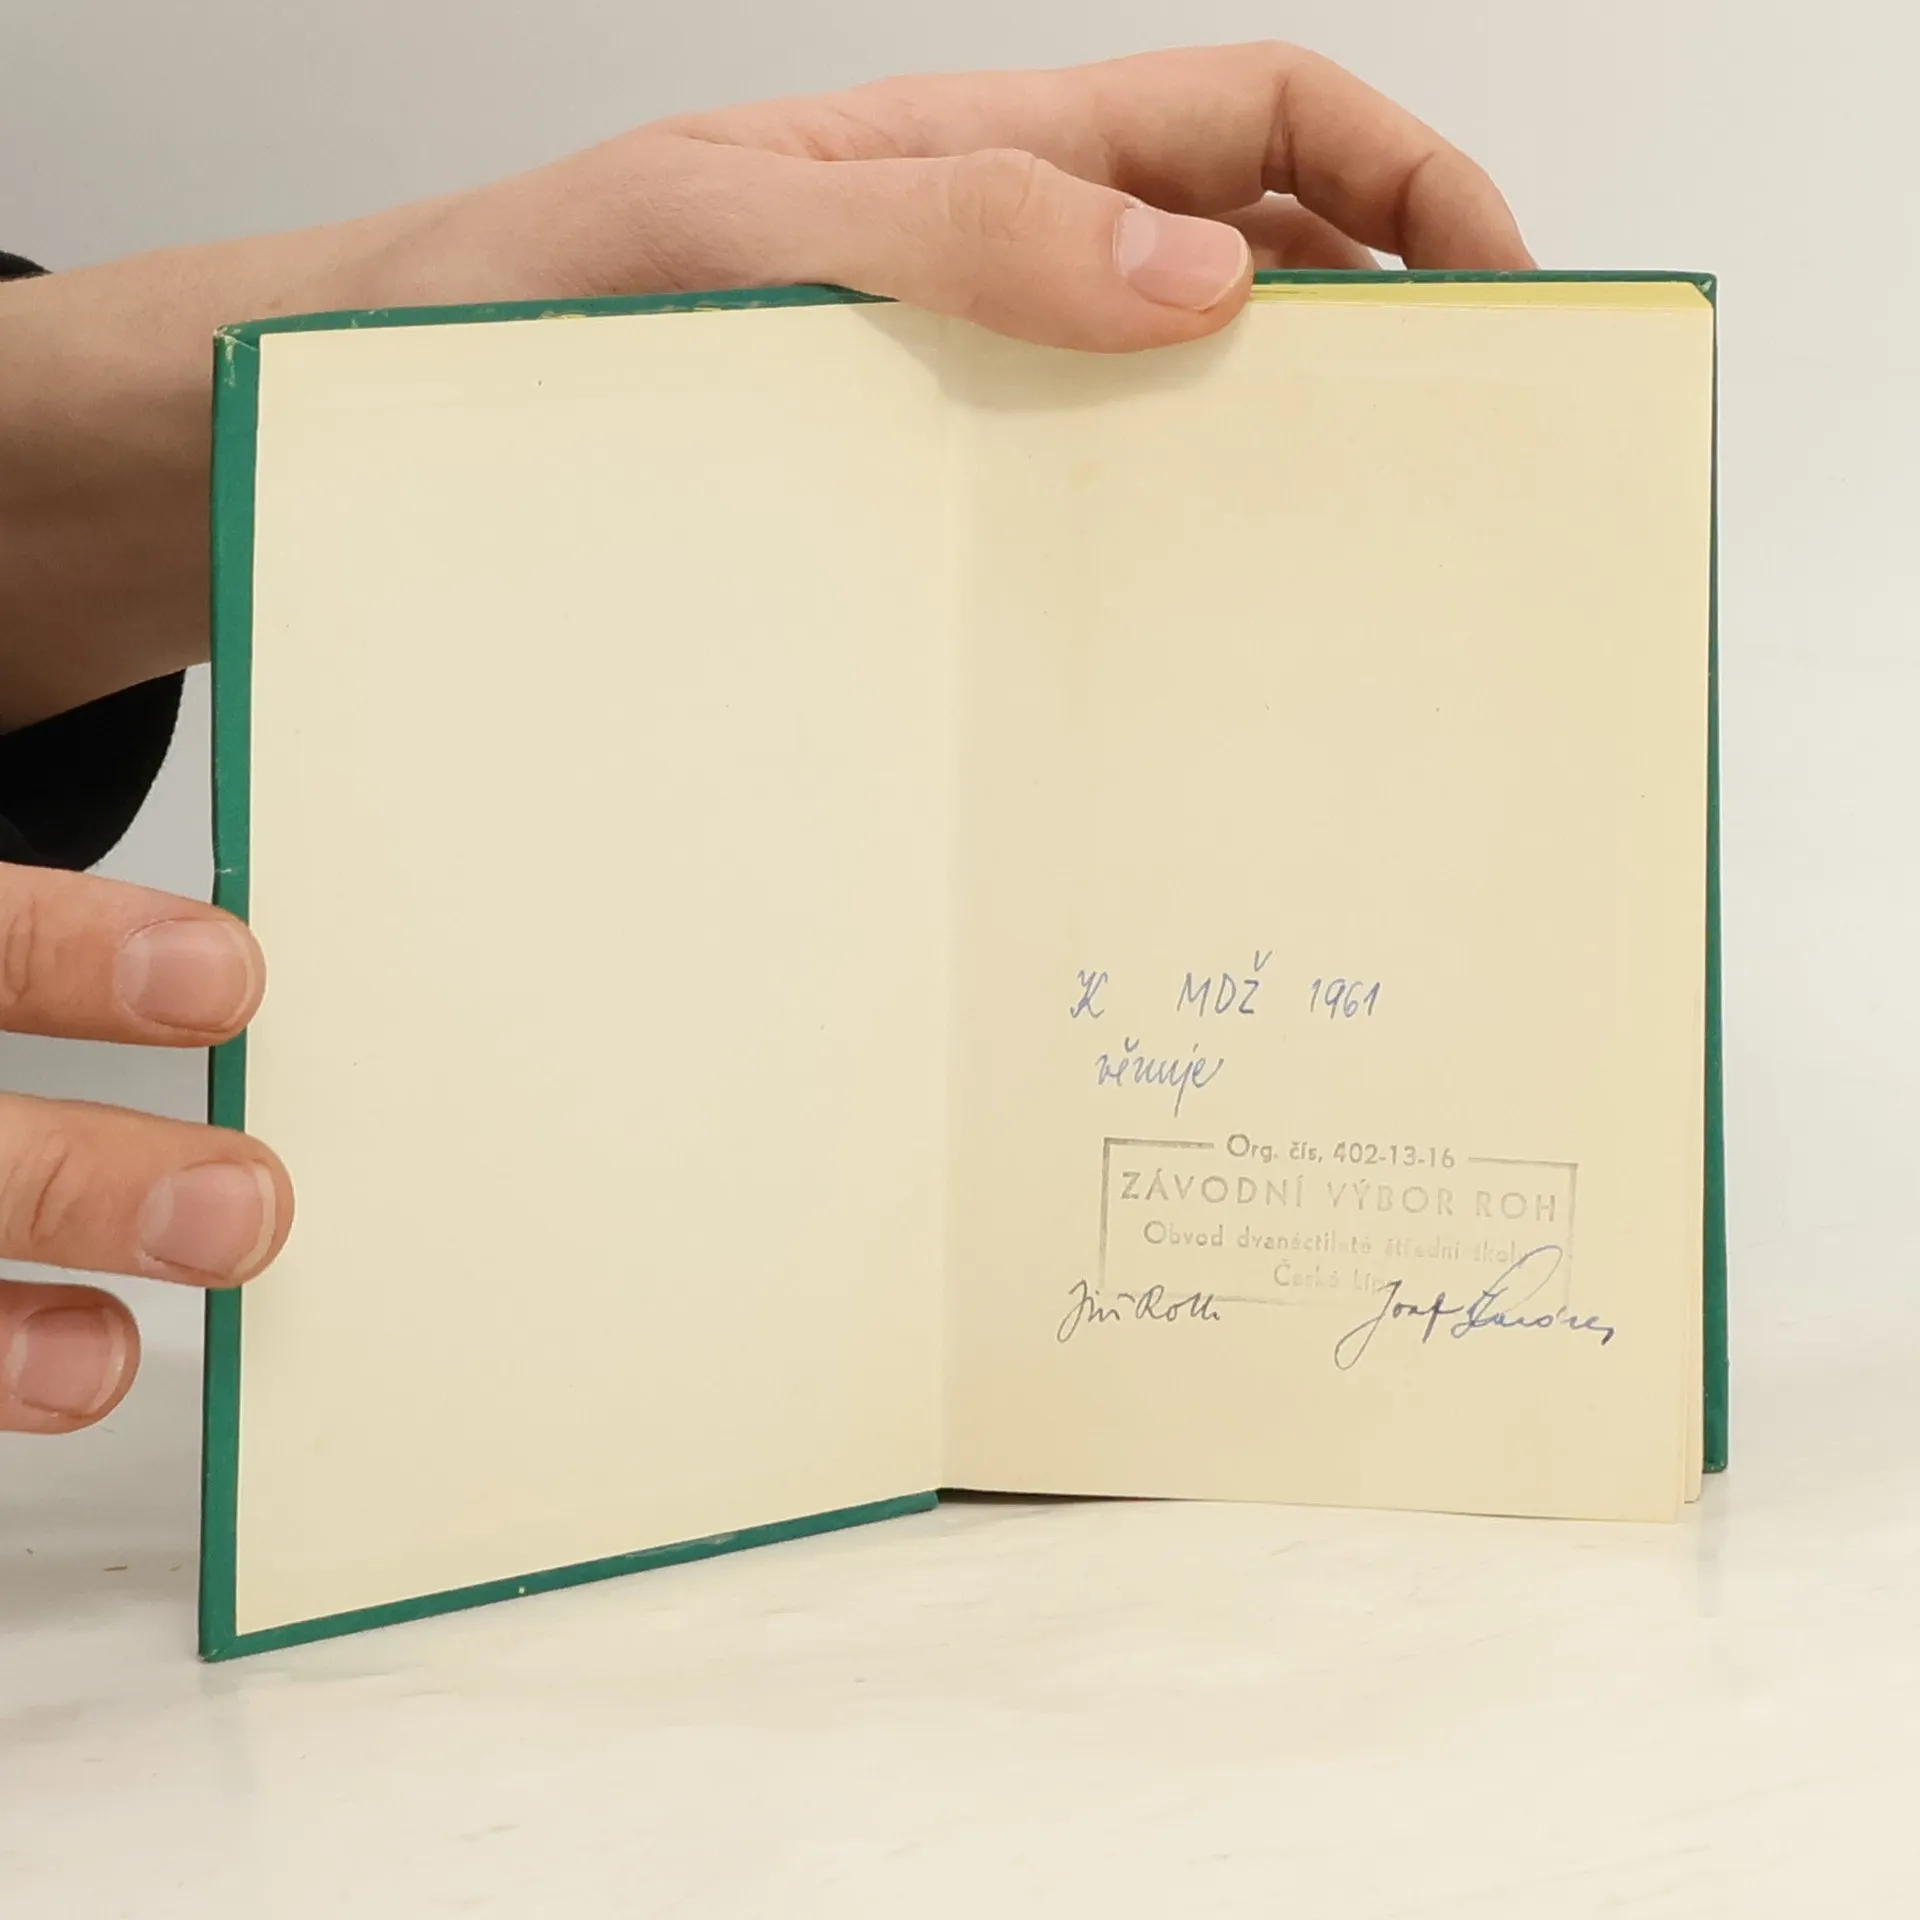 K MDŽ 1961
věnuje
Org. čís, 402-13-16
ZÁVODNÍ VÝBOR ROH
Obvod dvanáctileté střední školy
Česká Lípa
Jiří Roth Josef